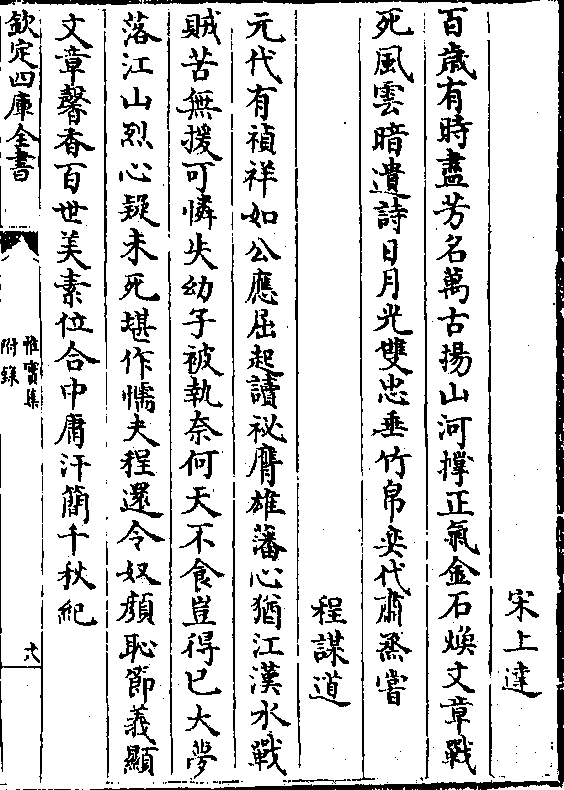 宋上達
百歳有時盡芳名萬古揚山河撐正氣金石煥文章戰
死風雲暗遺詩日月光雙忠垂竹帛奕代肅烝嘗
程謀道
元代有禎祥如公應屈起讀祕膺雄藩心猶江漢水戰
賊苦無援可憐失幼子被執奈何天不食豈得已大夢
落江山烈心疑未死堪作懦夫程還令奴顔恥節義顯
文章馨香百世美素位合中庸汗簡千秋紀
欽定四庫全書
惟實集
附錄
六